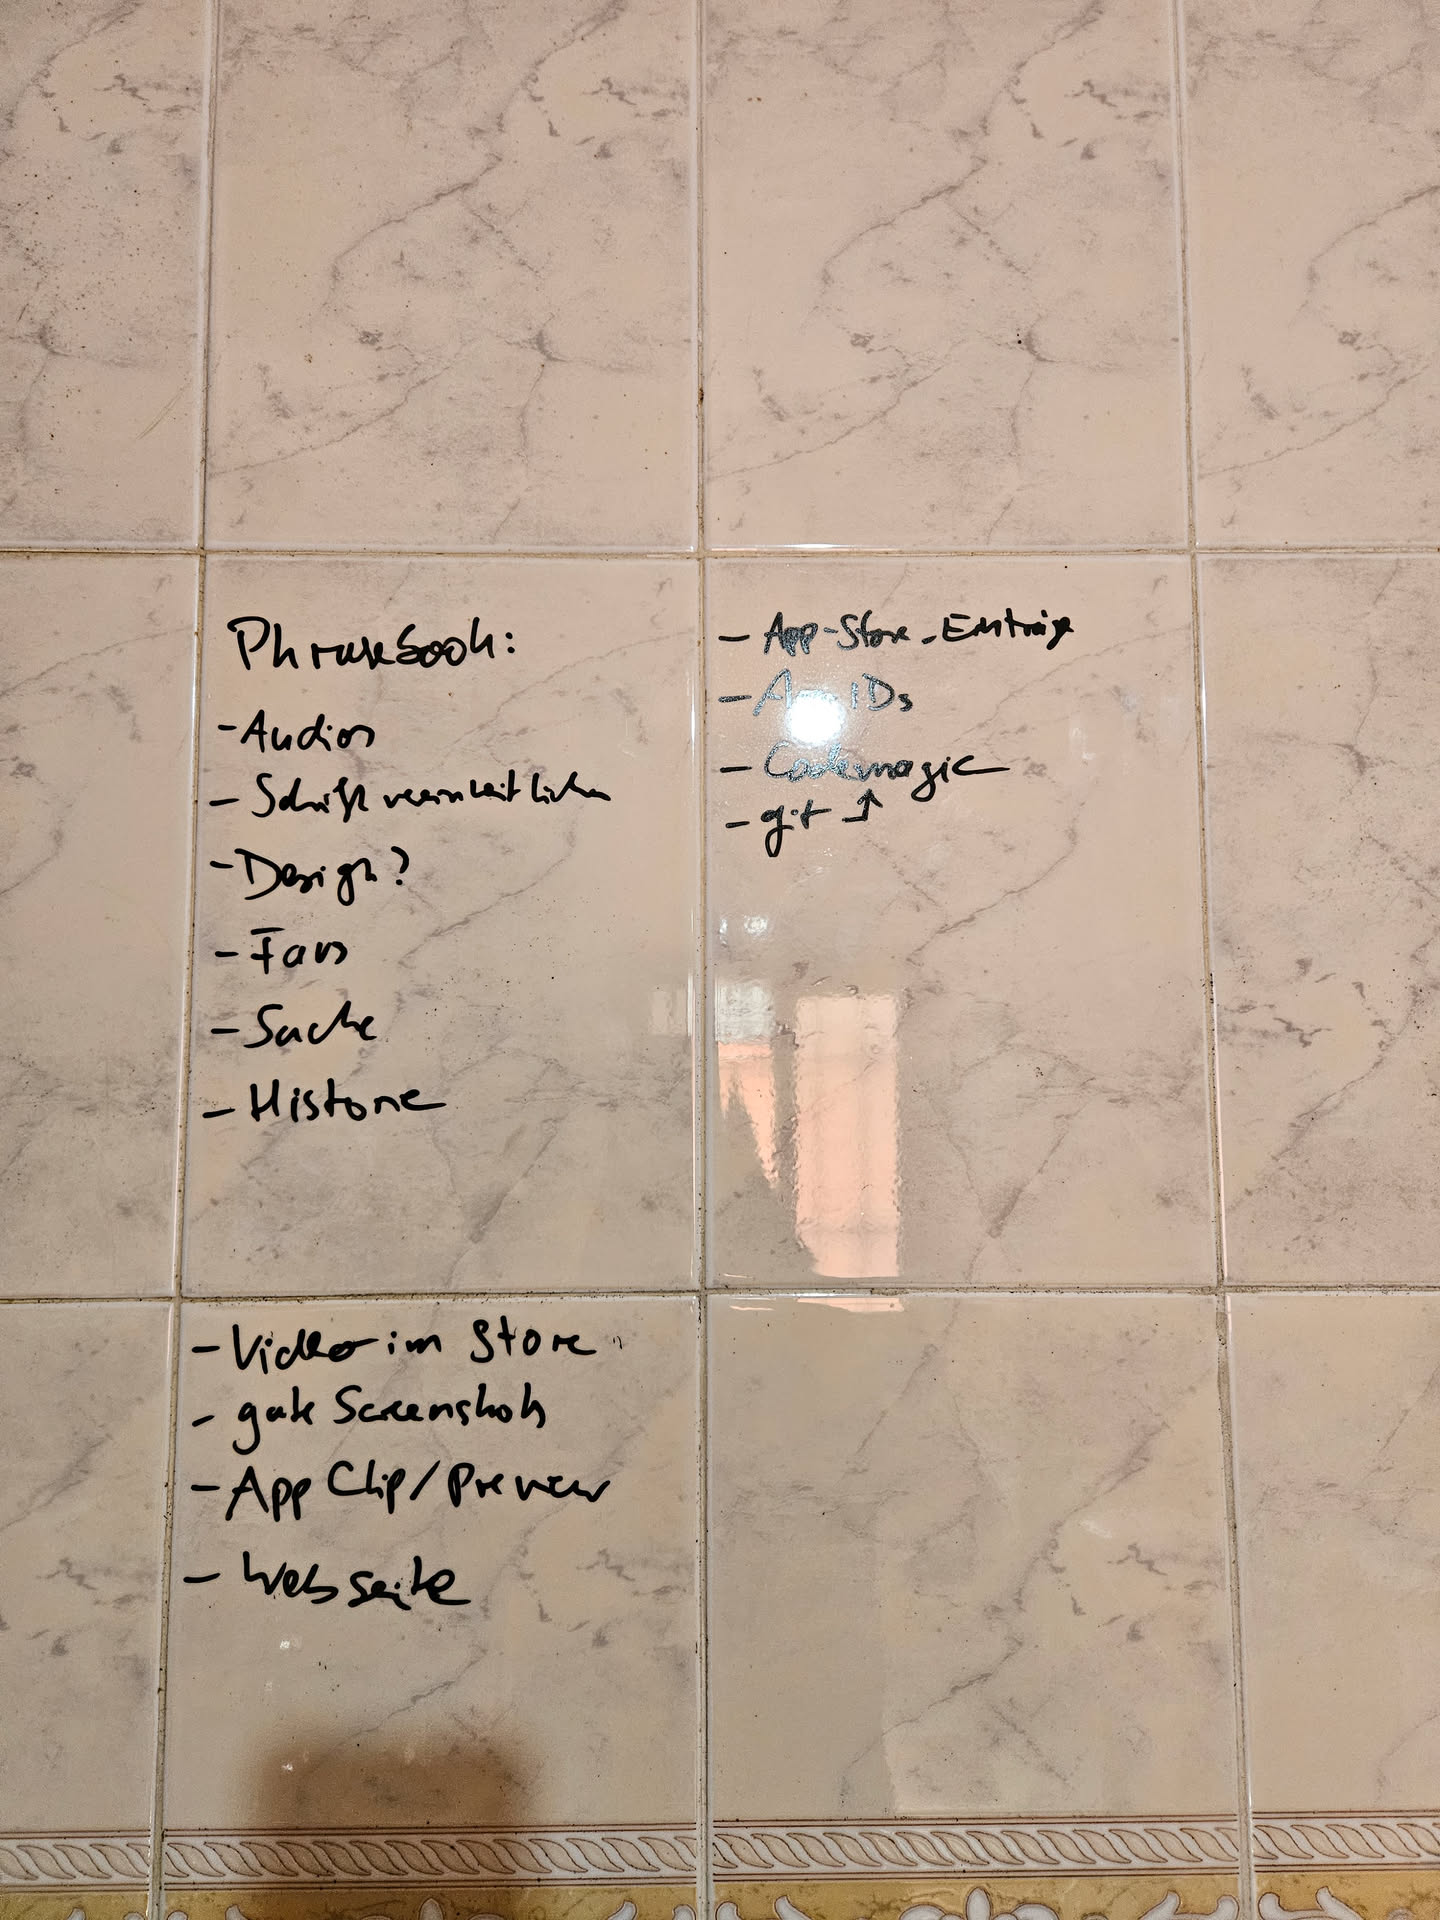 Phrasebook:
- Audios
- Schrift vereinheitlichen
- Design?
- Favs
- Suche
- Historie
- Video im Store
- gute Screenshots
- App Clip/Preview
- Webseite
- App-Store-Einträge
- IDs
- Codemagic
- git ↑